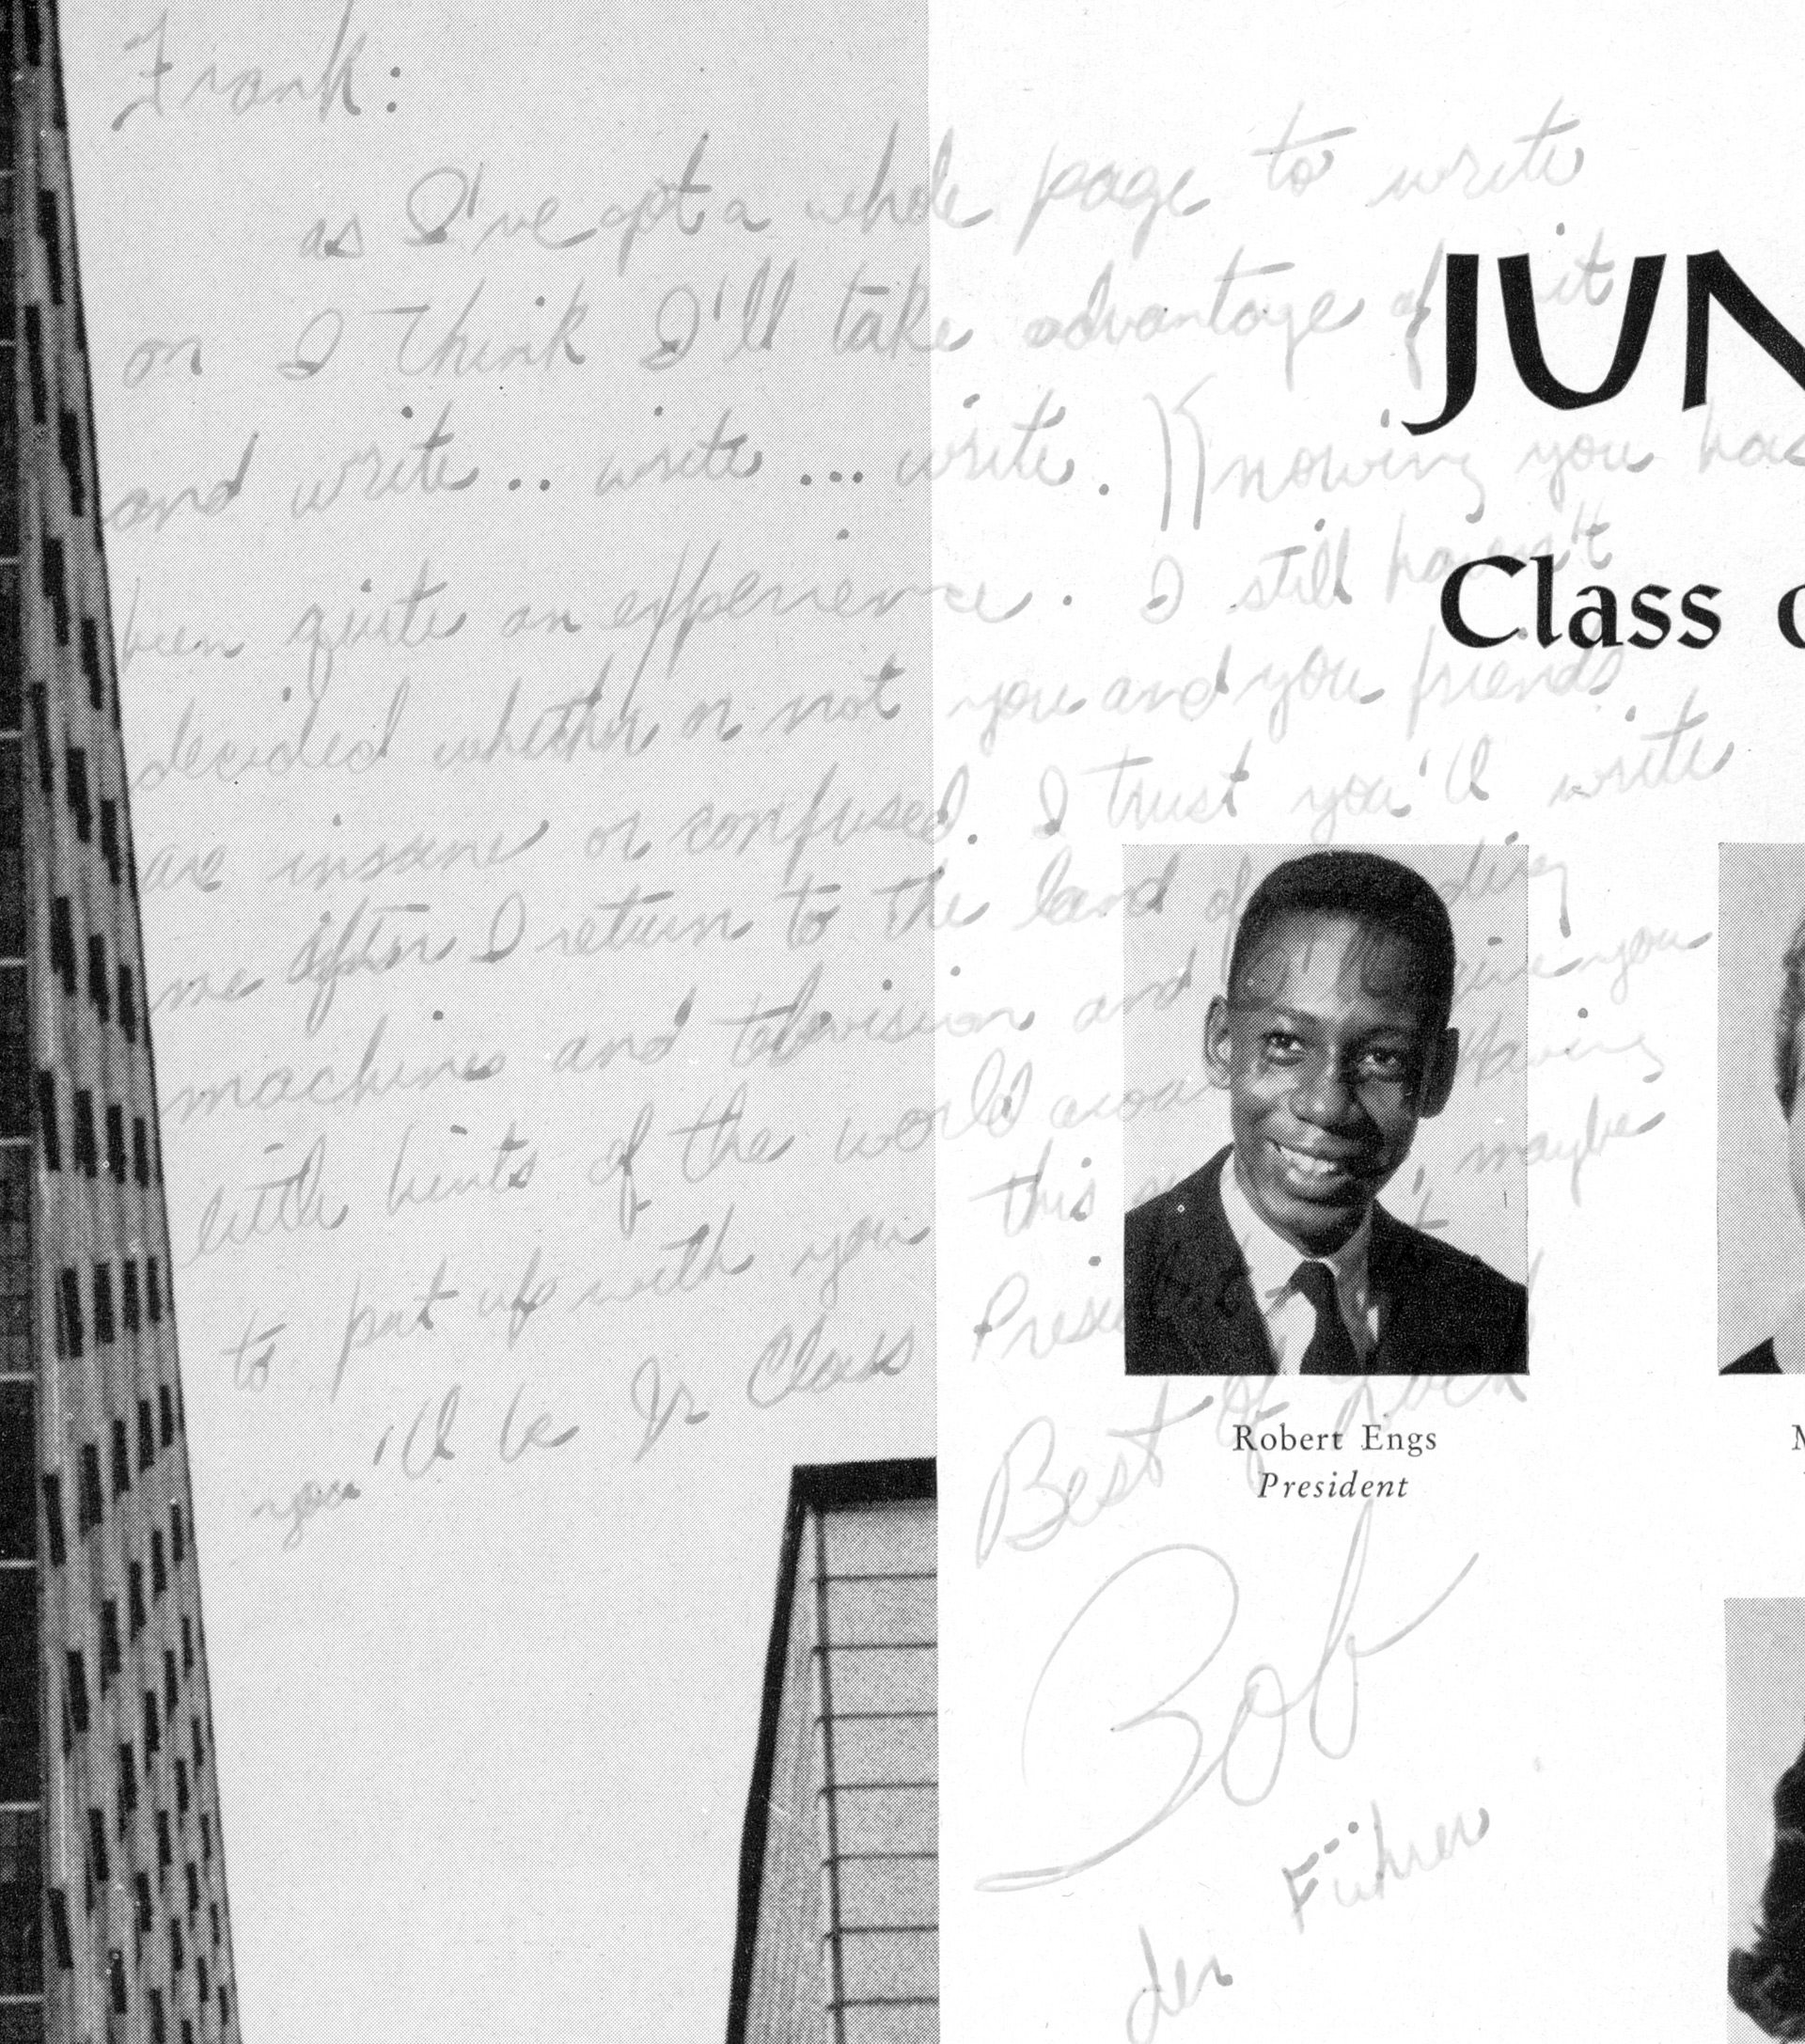 Frank:
as I've got a whole page to write
on I think I'll take advantage of it
and write .. write ... write. Knowing you has
been quite an experience. I still haven't
decided whether or not you and you friends
are insane or confused. I trust you'll write
me after I return to the land of
machines and television and give you
little hints of the world Having
to put up with you this maybe
you'll be Jr Class President
Best of Luck
Bob
der Führer
JUN
Class o
Robert Engs
President
M